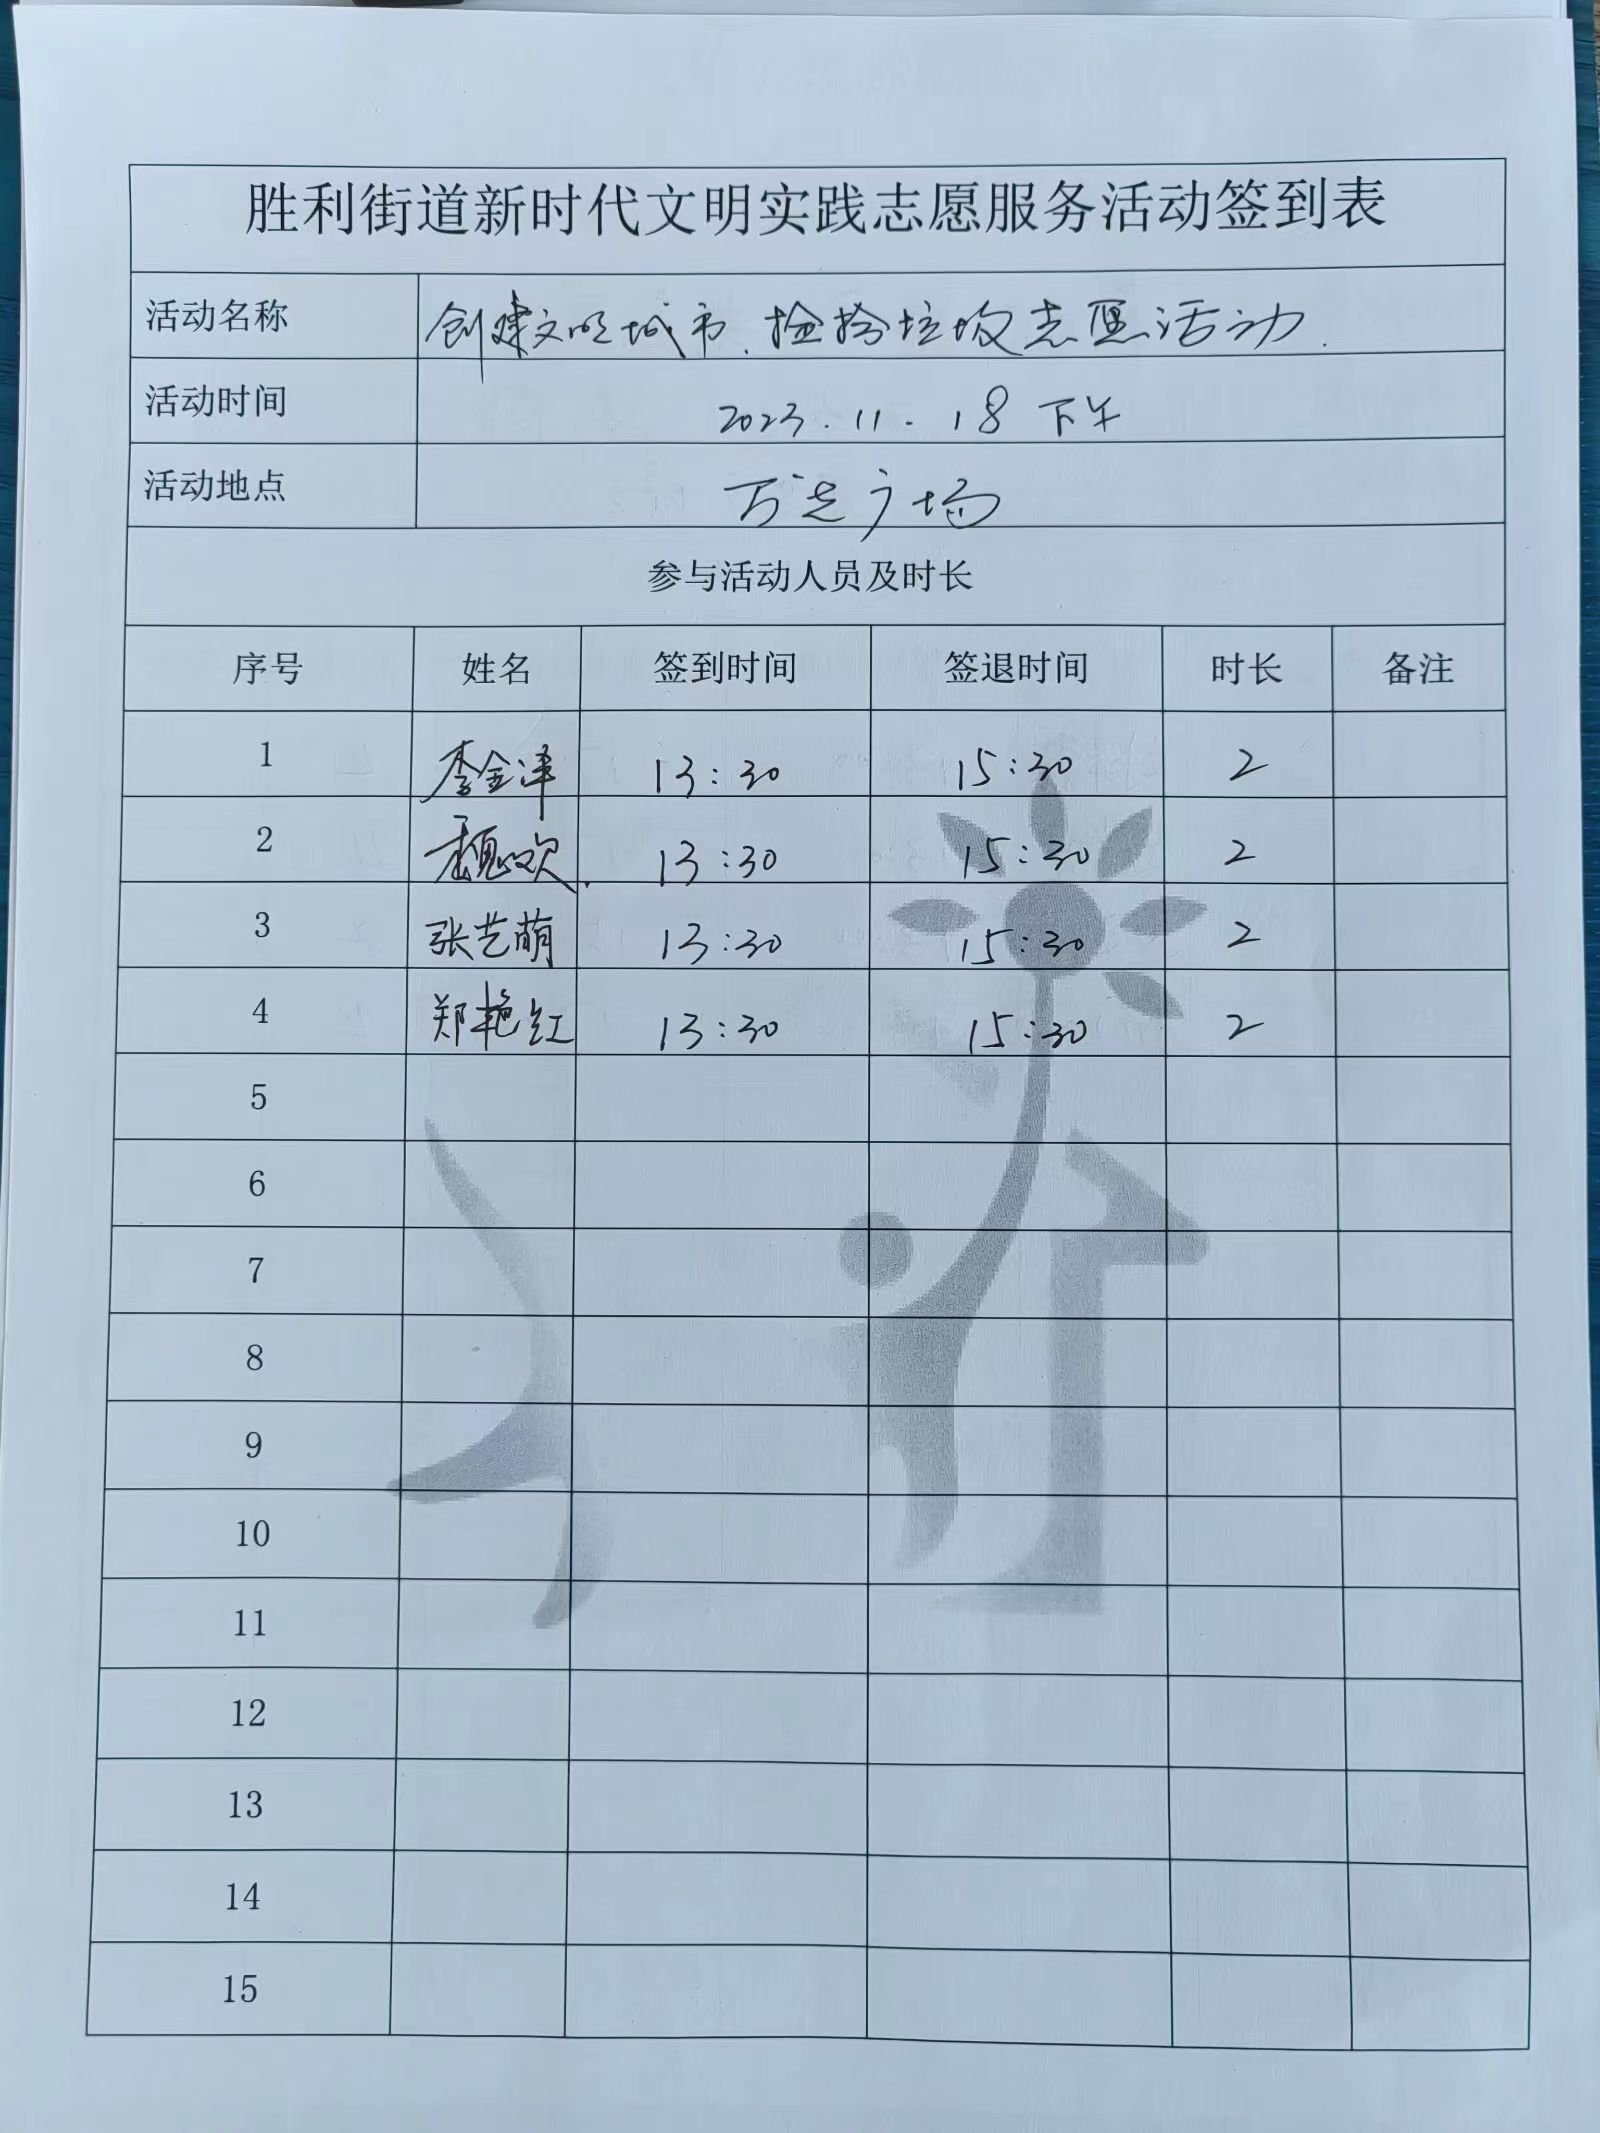 胜利街道新时代文明实践志愿服务活动签到表
活动名称 创建文明城市.捡拾垃圾志愿活动.
活动时间 2023.11.18 下午
活动地点 万达广场
参与活动人员及时长
序号 姓名 签到时间 签退时间 时长 备注
1 李金泽 13:30 15:30 2
2 魏欢 13:30 15:30 2
3 张艺萌 13:30 15:30 2
4 郑艳红 13:30 15:30 2
5
6
7
8
9
10
11
12
13
14
15